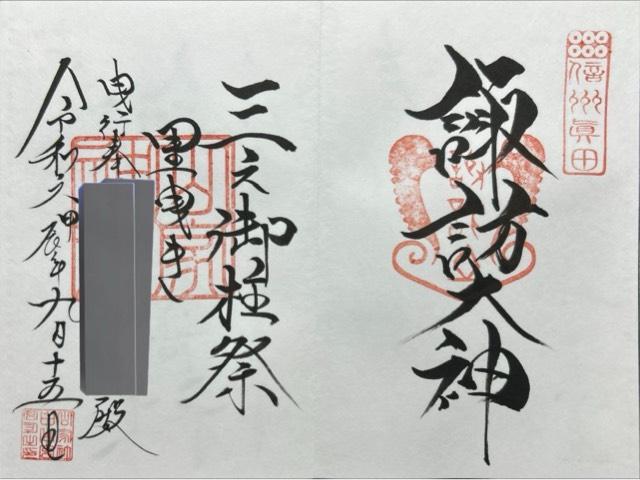 信州眞田
諏訪大神
三之御柱祭
里曳き
曳行奉 殿
令和六甲辰年九月十五日